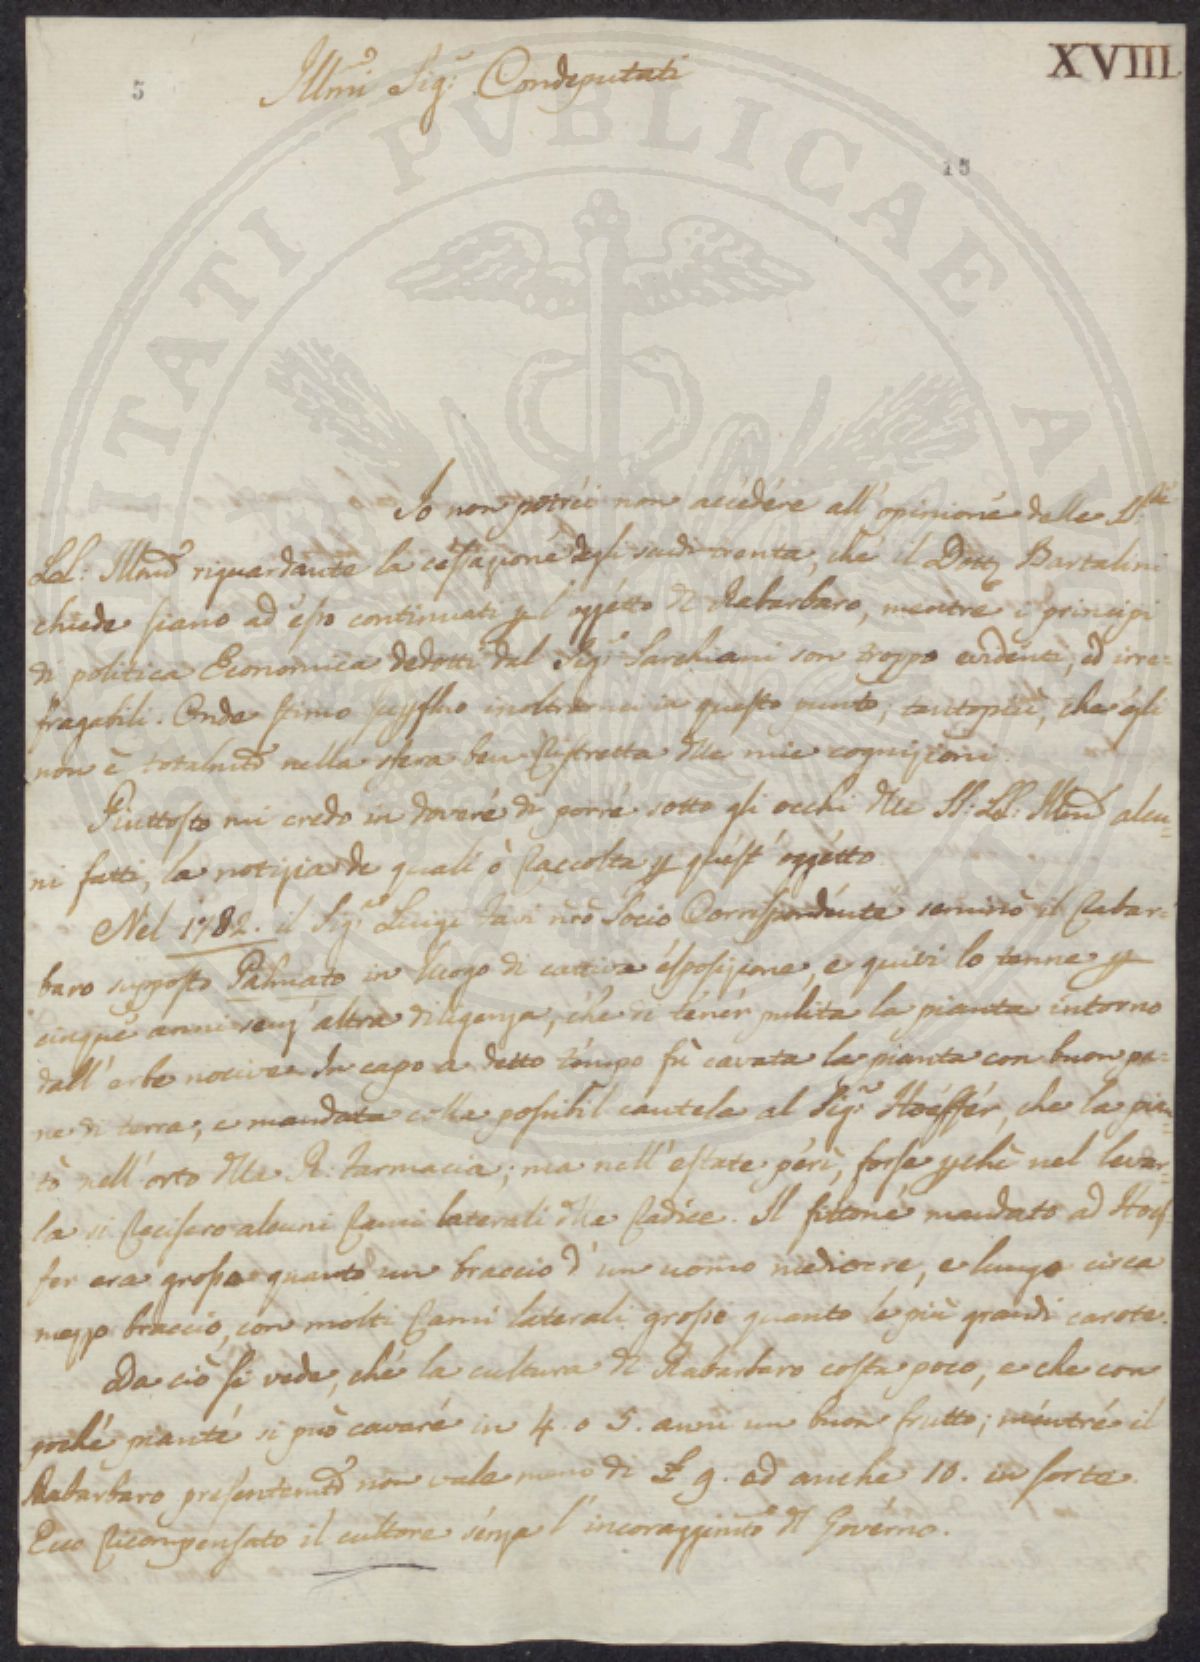 XVIII
5
Illmi Sig.i Condeputati
15
Io non potrei non accedére all' opinione delle LL.
LL: Illme riguardante la cessazione degli scudi trenta, che il Dott. Bartalini
chiede siano ad esso continuati p l' oggetto di Rabarbaro, mentre i principi
di politica Economica dedotti dal Sig.r Sarchiani son troppo evidenti, ed irre=
fragabili. Onde stimo supfluo inoltrarmi in questo punto, tantopiù, che egli
non è totalmte nella sfera ben ristretta dlle mie cognizioni.
Piuttosto mi credo in dovere di porre sotto gli occhi dlle LL: LL: Illme alcu=
ni fatti, la notizia de quali ò raccolta p quest' oggetto
Nel 1782. il Sig.r Luigi Tasi nro Socio Corrispondente seminò il Rabar=
baro supposto Palmato in luogo di cattiva esposizione, e quivi lo tenne p
cinque anni senz' altra diligenza, che di tener pulita la pianta intorno
dall' erbe nocive. In capo a detto tempo fù cavata la pianta con buon pa=
ne di terra, e mandata colla possibil cautela al Sig.r Hoeffer, che la pian=
tò nell' orto dlla R. Farmacia; ma nell' estate perì, forse pchè nel levar=
la si recisero alcuni rami laterali dlla radice. Il fittone mandato ad Hoef=
fer era grosso quanto un braccio d' un uomo mediocre, e lungo circa
mezzo braccio, con molti rami laterali grossi quanto le più grandi carote.
Da ciò si vede, che la cultura di Rabarbaro costa poco, e che con
poche piante si può cavare in 4. o 5. anni un buon frutto; mentre il
Rabarbaro presentemte non vale meno di £ 9. ed anche 10. in sorte.
Ecco ricompensato il cultore senza l' incoraggimto dl Governo.